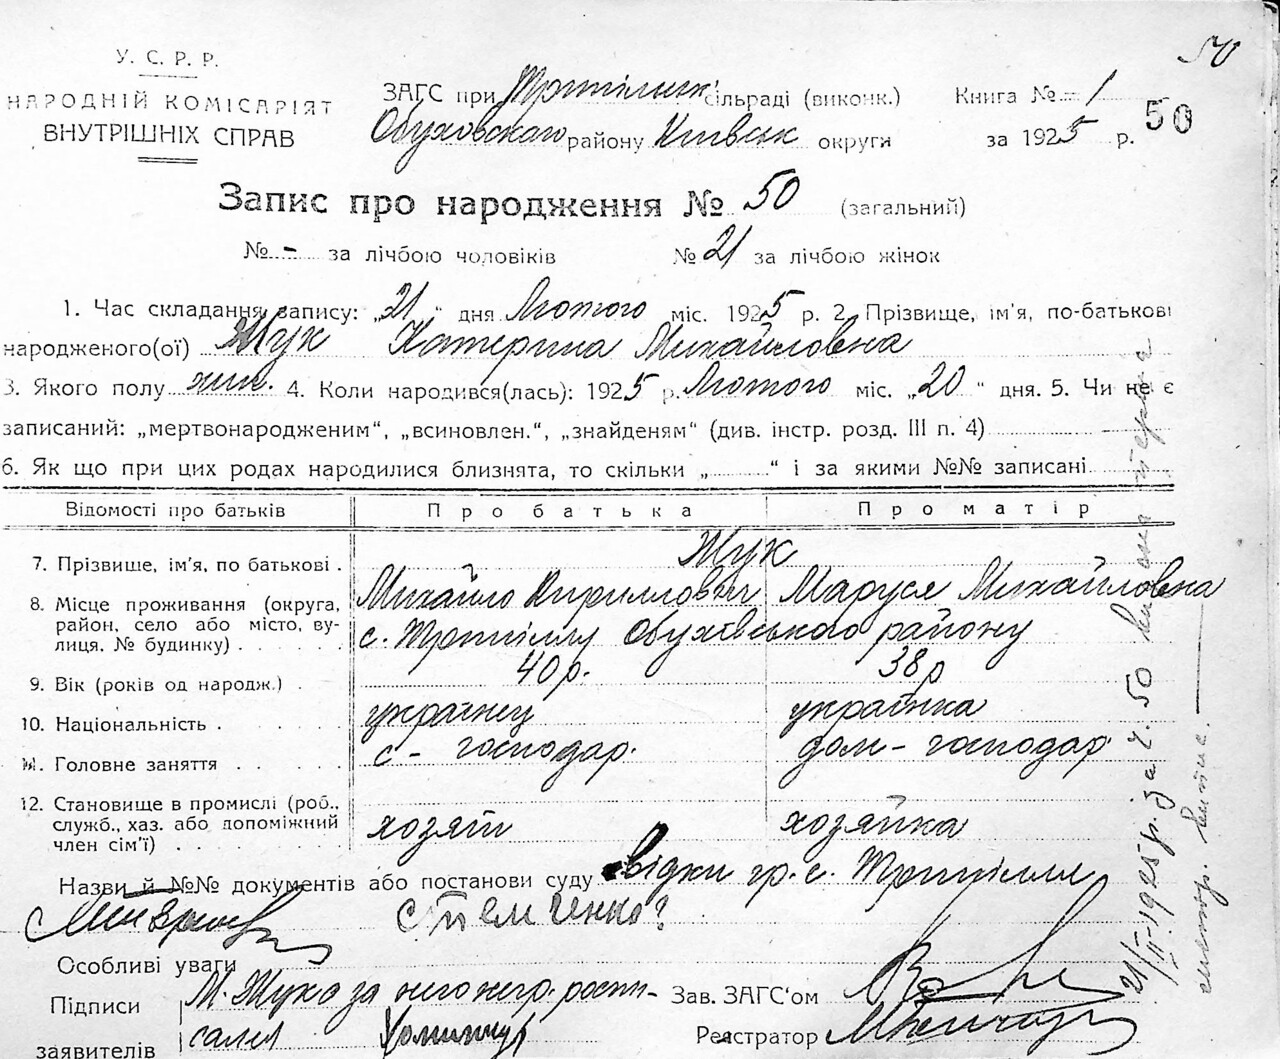 50
У. С. Р. Р.
НАРОДНІЙ КОМІСАРІЯТ
ВНУТРІШНІХ СПРАВ
ЗАГС при Трипільск сільраді (виконк.)
Обуховского району Київськ округи
Книга № 1
за 1925 р.
50
Запис про народження № 50 (загальний)
№ - за лічбою чоловіків № 21 за лічбою жінок
1. Час складання запису: „21“ дня Лютого міс. 1925 р. 2. Прізвище, ім'я, по-батькові
народженого(ої) Жук Катерина Михайловна
3. Якого полу жін. 4. Коли народився(лась): 1925 р. Лютого міс. „20“ дня. 5. Чи не є
записаний: „мертвонародженим“, „всиновлен.“, „знайденям“ (див. інстр. розд. III п. 4)
6. Як що при цих родах народилися близнята, то скільки „ “ і за якими №№ записані
Відомості про батьків Про батька Про матір
7. Прізвище, ім'я, по батькові . Жук
Михайло Кириллович Маруся Михайловна
8. Місце проживання (округа, район, село або місто, вулиця. № будинку) с. Трипіллу Обухівського району
9. Вік (років од народж.) . 40 р. 38 р
10. Національність . українец українка
11. Головне заняття с-господар. дом-господар
12. Становище в промислі (роб., служб., хаз. або допоміжний член сім'ї) хозяїн хозяйка
Назви й №№ документів або постанови суду гр. с. Трипілля
Особливі уваги
Підписи М. Жука за него негр. роспи- Зав. ЗАГС'ом
заявителів сался Реєстратор
21/II-1925 р. за ч. 50